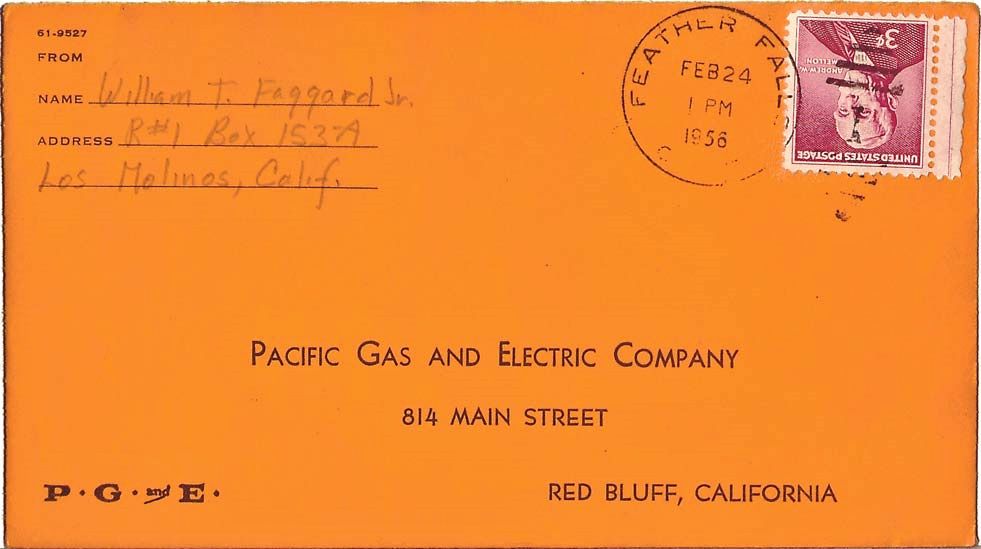 61-9527
FROM
NAME William T. Faggard Jr.
ADDRESS R#1 Box 153-A
Los Molinos, Calif.
FEATHER FALL
FEB 24
1 PM
1956
3¢
ANDREW W. MELLON
UNITED STATES POSTAGE
PACIFIC GAS AND ELECTRIC COMPANY
814 MAIN STREET
P · G · and E ·
RED BLUFF, CALIFORNIA